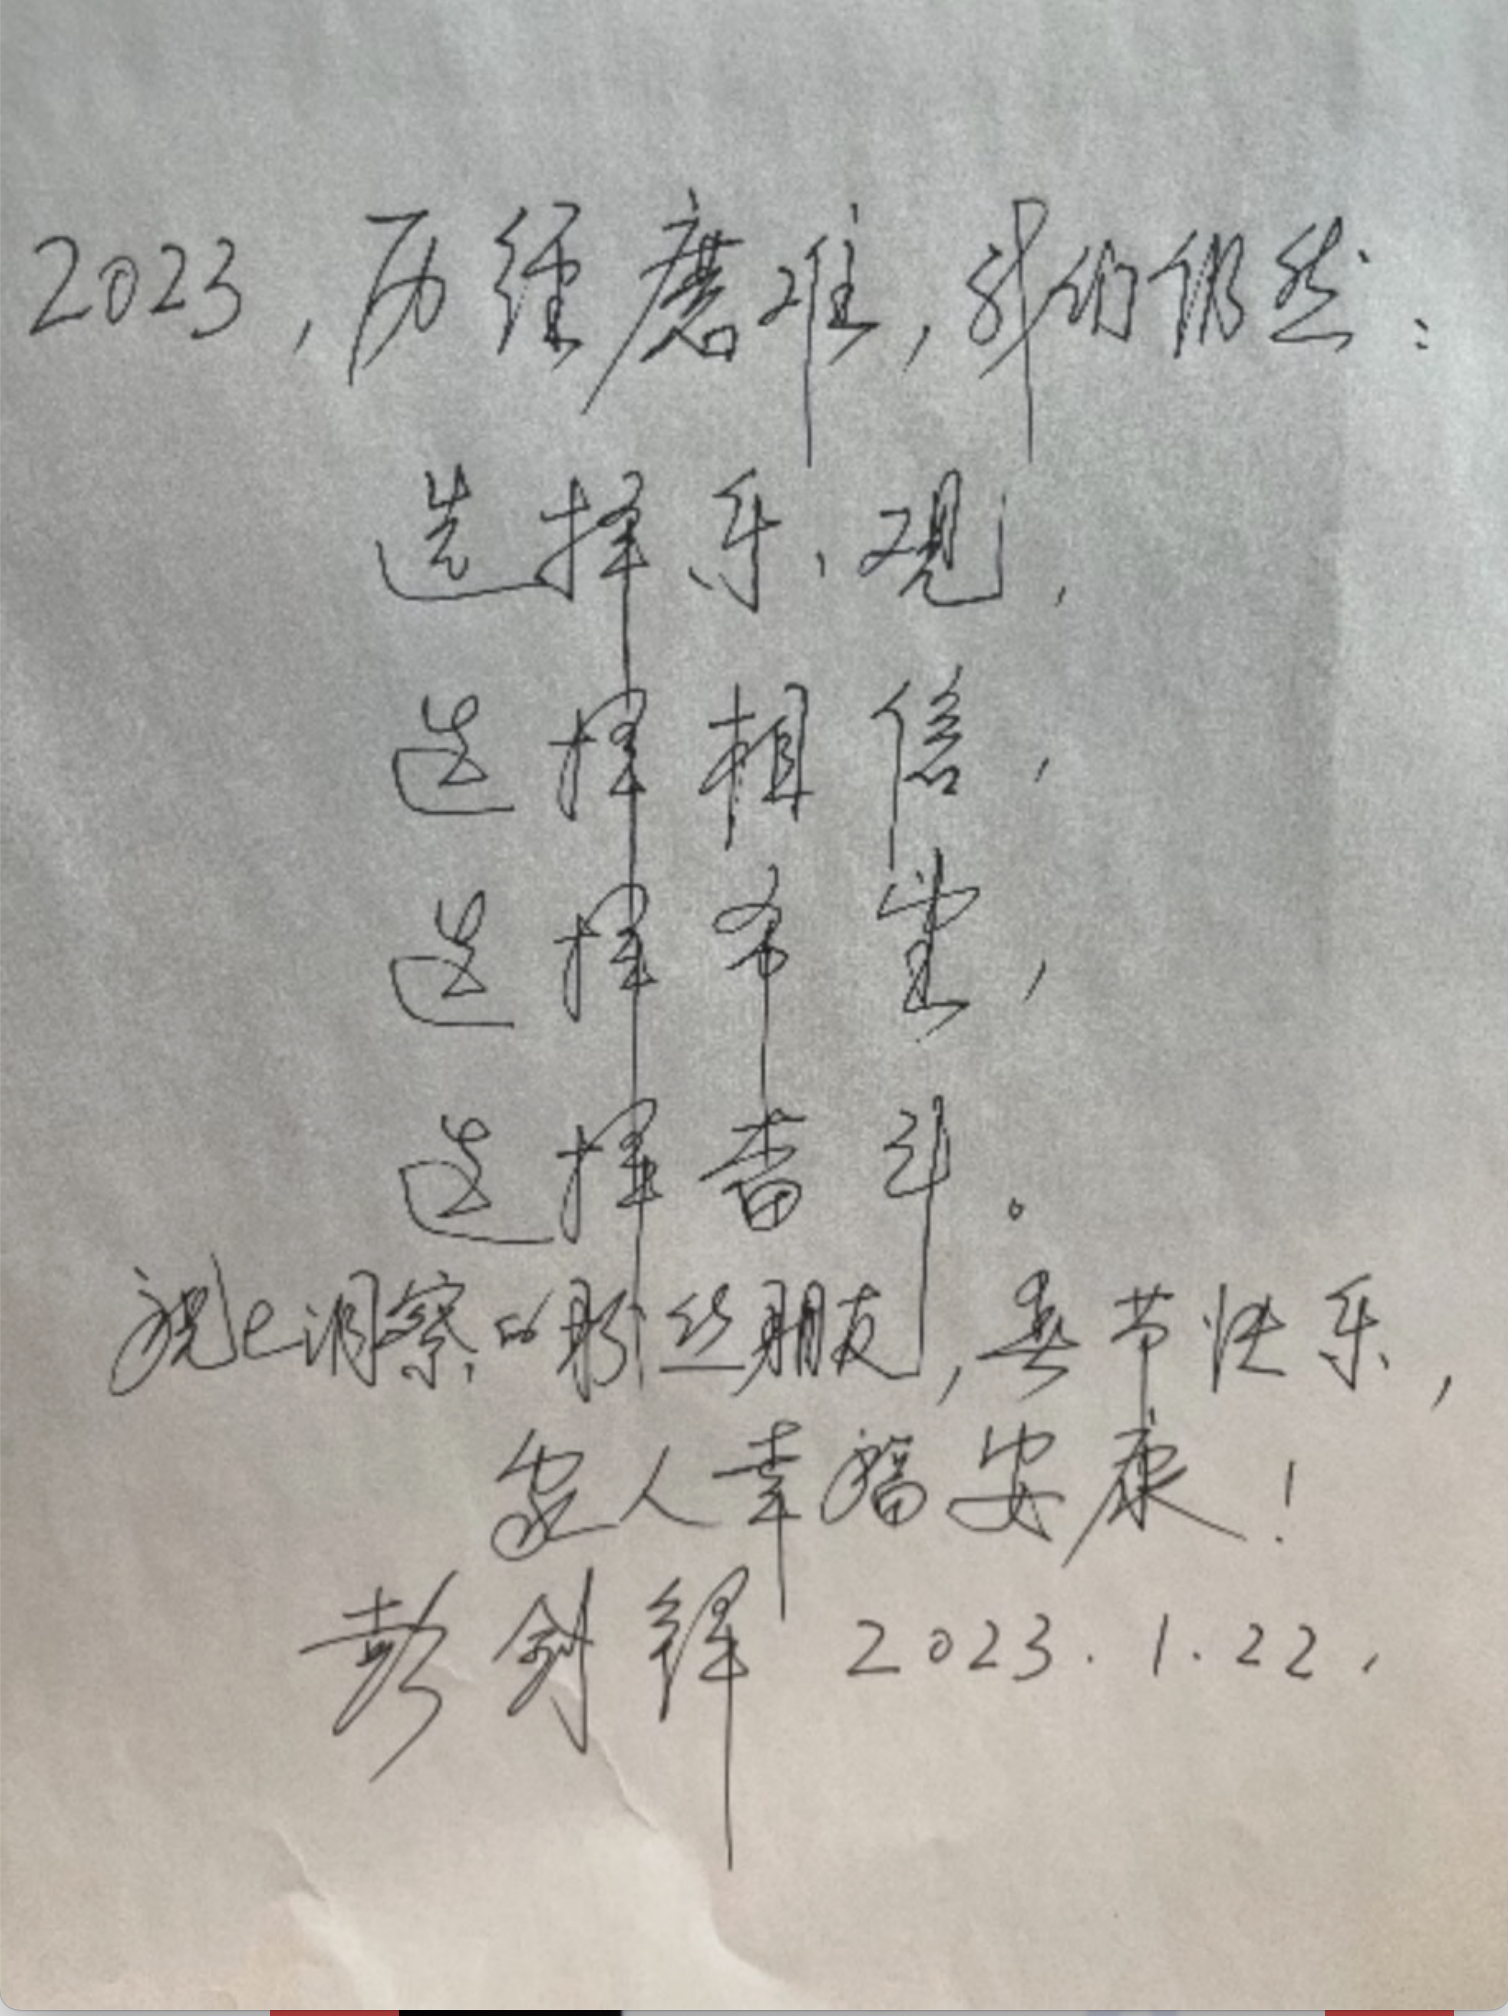 2023，历经磨难，我们仍然：
选择乐观，
选择相信，
选择希望，
选择奋斗。
祝e洞察的粉丝朋友，春节快乐，
家人幸福安康！
彭剑锋 2023.1.22.